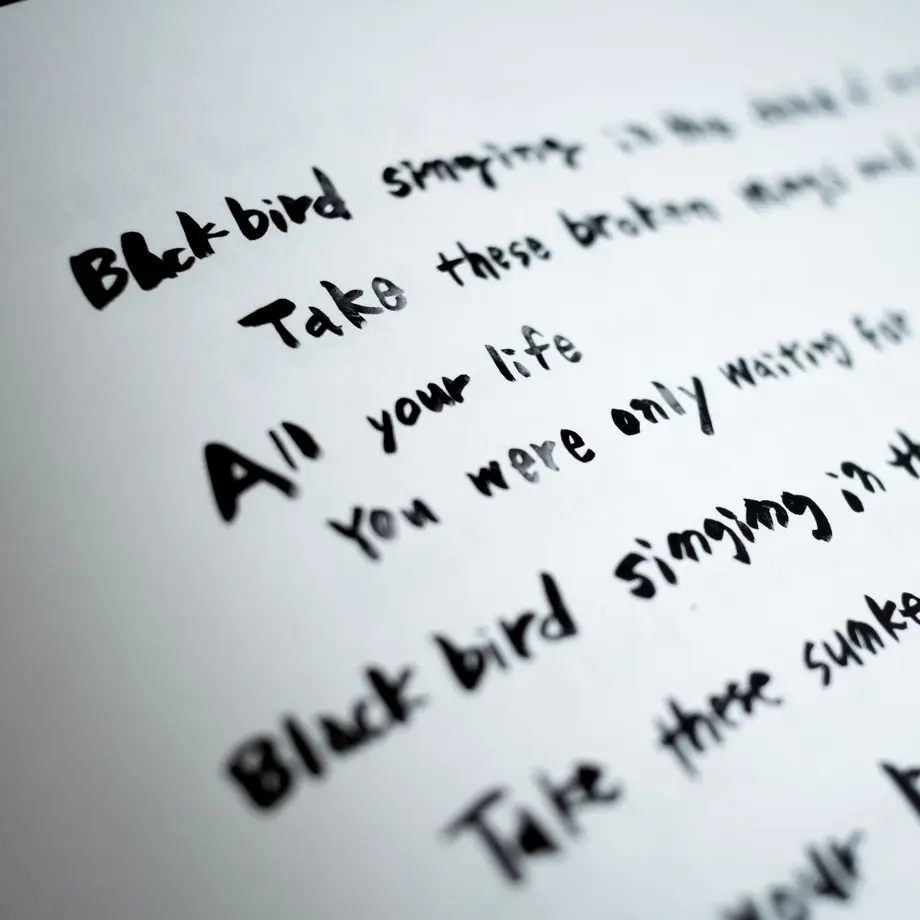 Blackbird singing in the
Take these broken wings and
All your life
You were only waiting for
Black bird singing in th
Take these sunke
your